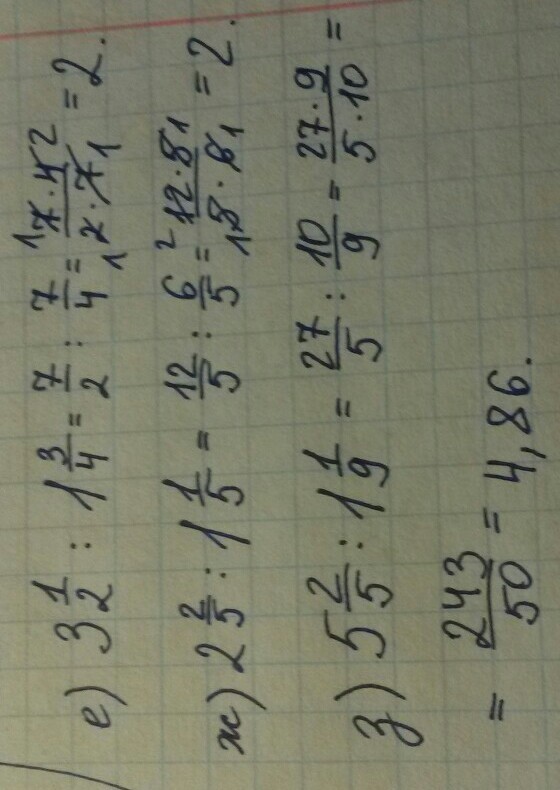 е) 3 1/2 : 1 3/4 = 7/2 : 7/4 = 7·4/2·7 = 2.
ж) 2 2/5 : 1 1/5 = 12/5 : 6/5 = 12·5/5·6 = 2.
з) 5 2/5 : 1 1/9 = 27/5 : 10/9 = 27·9/5·10 =
= 243/50 = 4,86.